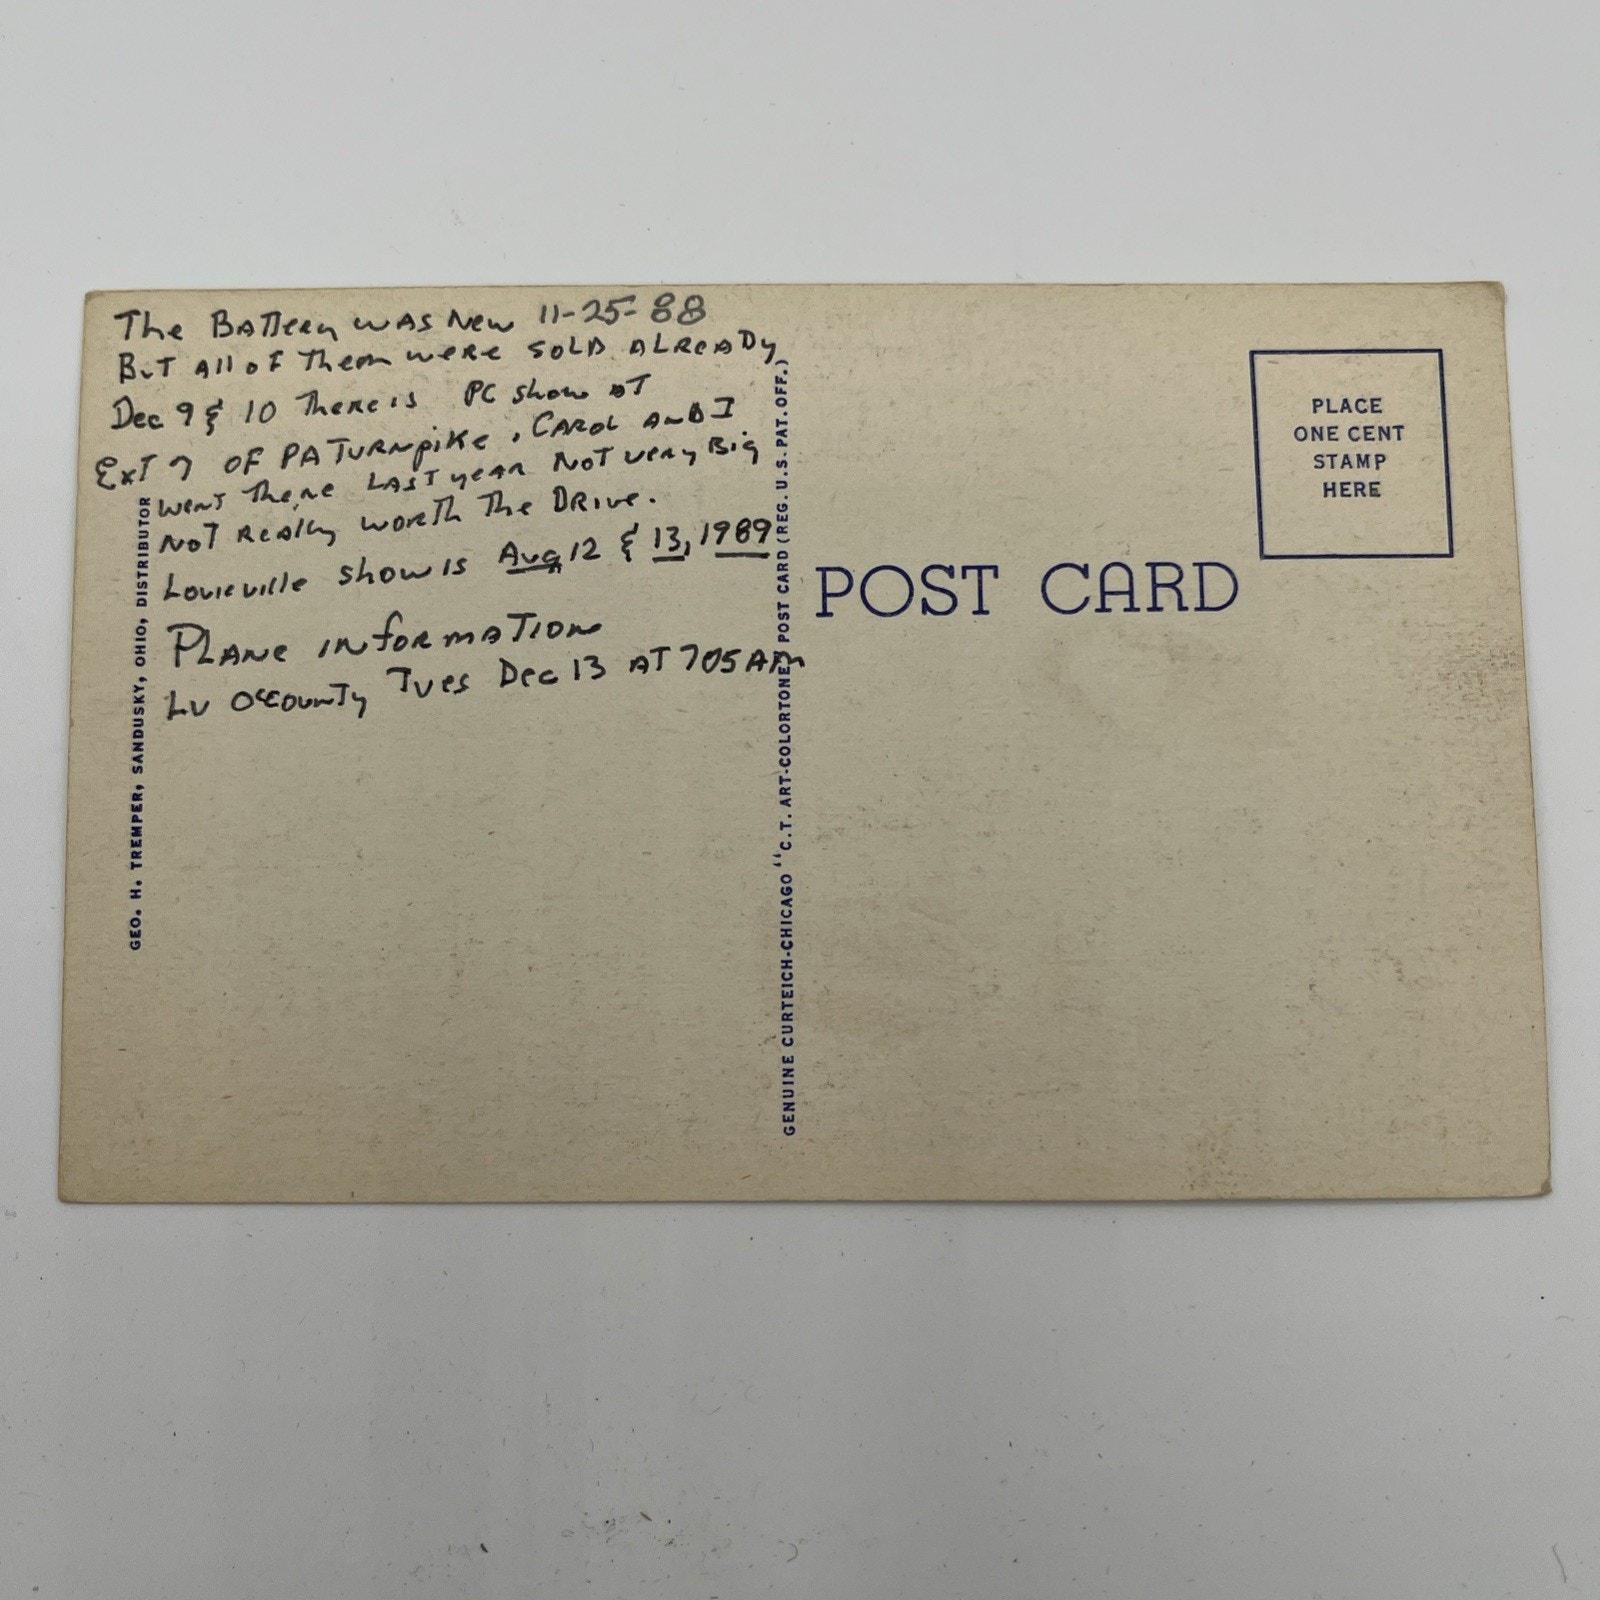 The Battery was New 11-25-88
But all of them were sold already
Dec 9 & 10 There is PC show at
Ext 7 of PA Turnpike, Carol and I
went there last year Not very Big
Not really worth The Drive.
Louieville show is Aug 12 & 13, 1989
Plane information
Lv O County Tues Dec 13 AT 705 AM
GEO. H. TREMPER, SANDUSKY, OHIO, DISTRIBUTOR
GENUINE CURTEICH-CHICAGO "C.T. ART-COLORTONE" POST CARD (REG. U.S. PAT. OFF.)
POST CARD
PLACE
ONE CENT
STAMP
HERE